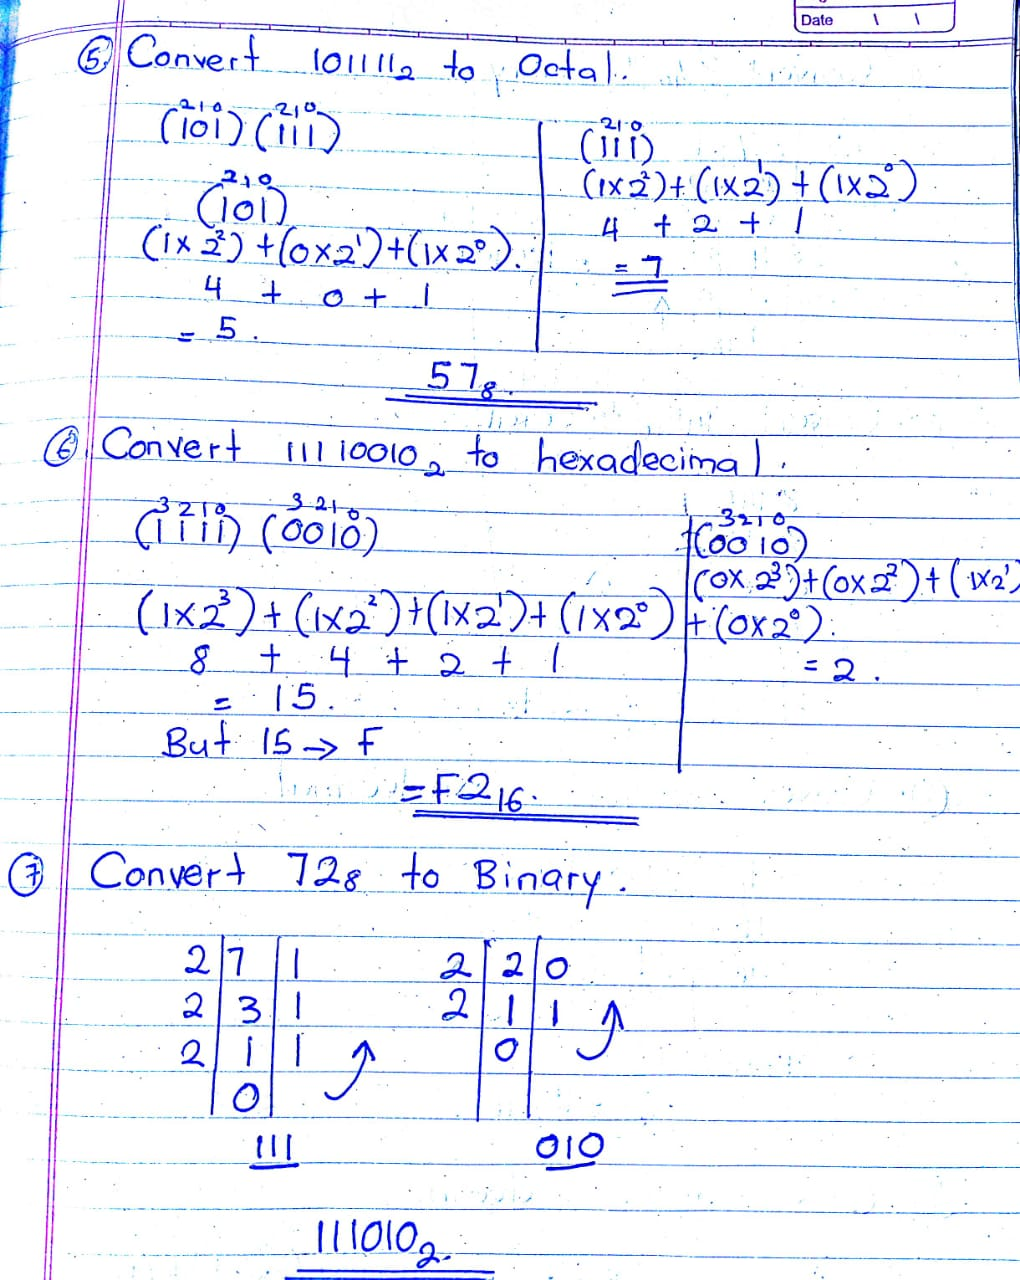 Date
⑤ Convert 101111₂ to Octal.
2 1 0 2 1 0
(101) (111)
2 1 0
(101)
(1x2²)+(0x2¹)+(1x2⁰).
4 + 0 + 1
= 5.
2 1 0
(111)
(1x2²)+(1x2¹)+(1x2⁰)
4 + 2 + 1
= 7
57₈.
⑥ Convert 11110010₂ to hexadecimal.
3 2 1 0 3 2 1 0
(1111) (0010)
(1x2³)+(1x2²)+(1x2¹)+(1x2⁰)
8 + 4 + 2 + 1
= 15.
But 15 → F
3 2 1 0
(0010)
(0x2³)+(0x2²)+(1x2¹)
+(0x2⁰).
= 2.
= F2₁₆.
⑦ Convert 72₈ to Binary.
2 7 1
2 3 1
2 1 1
0
111
2 2 0
2 1 1
0
010
111010₂.